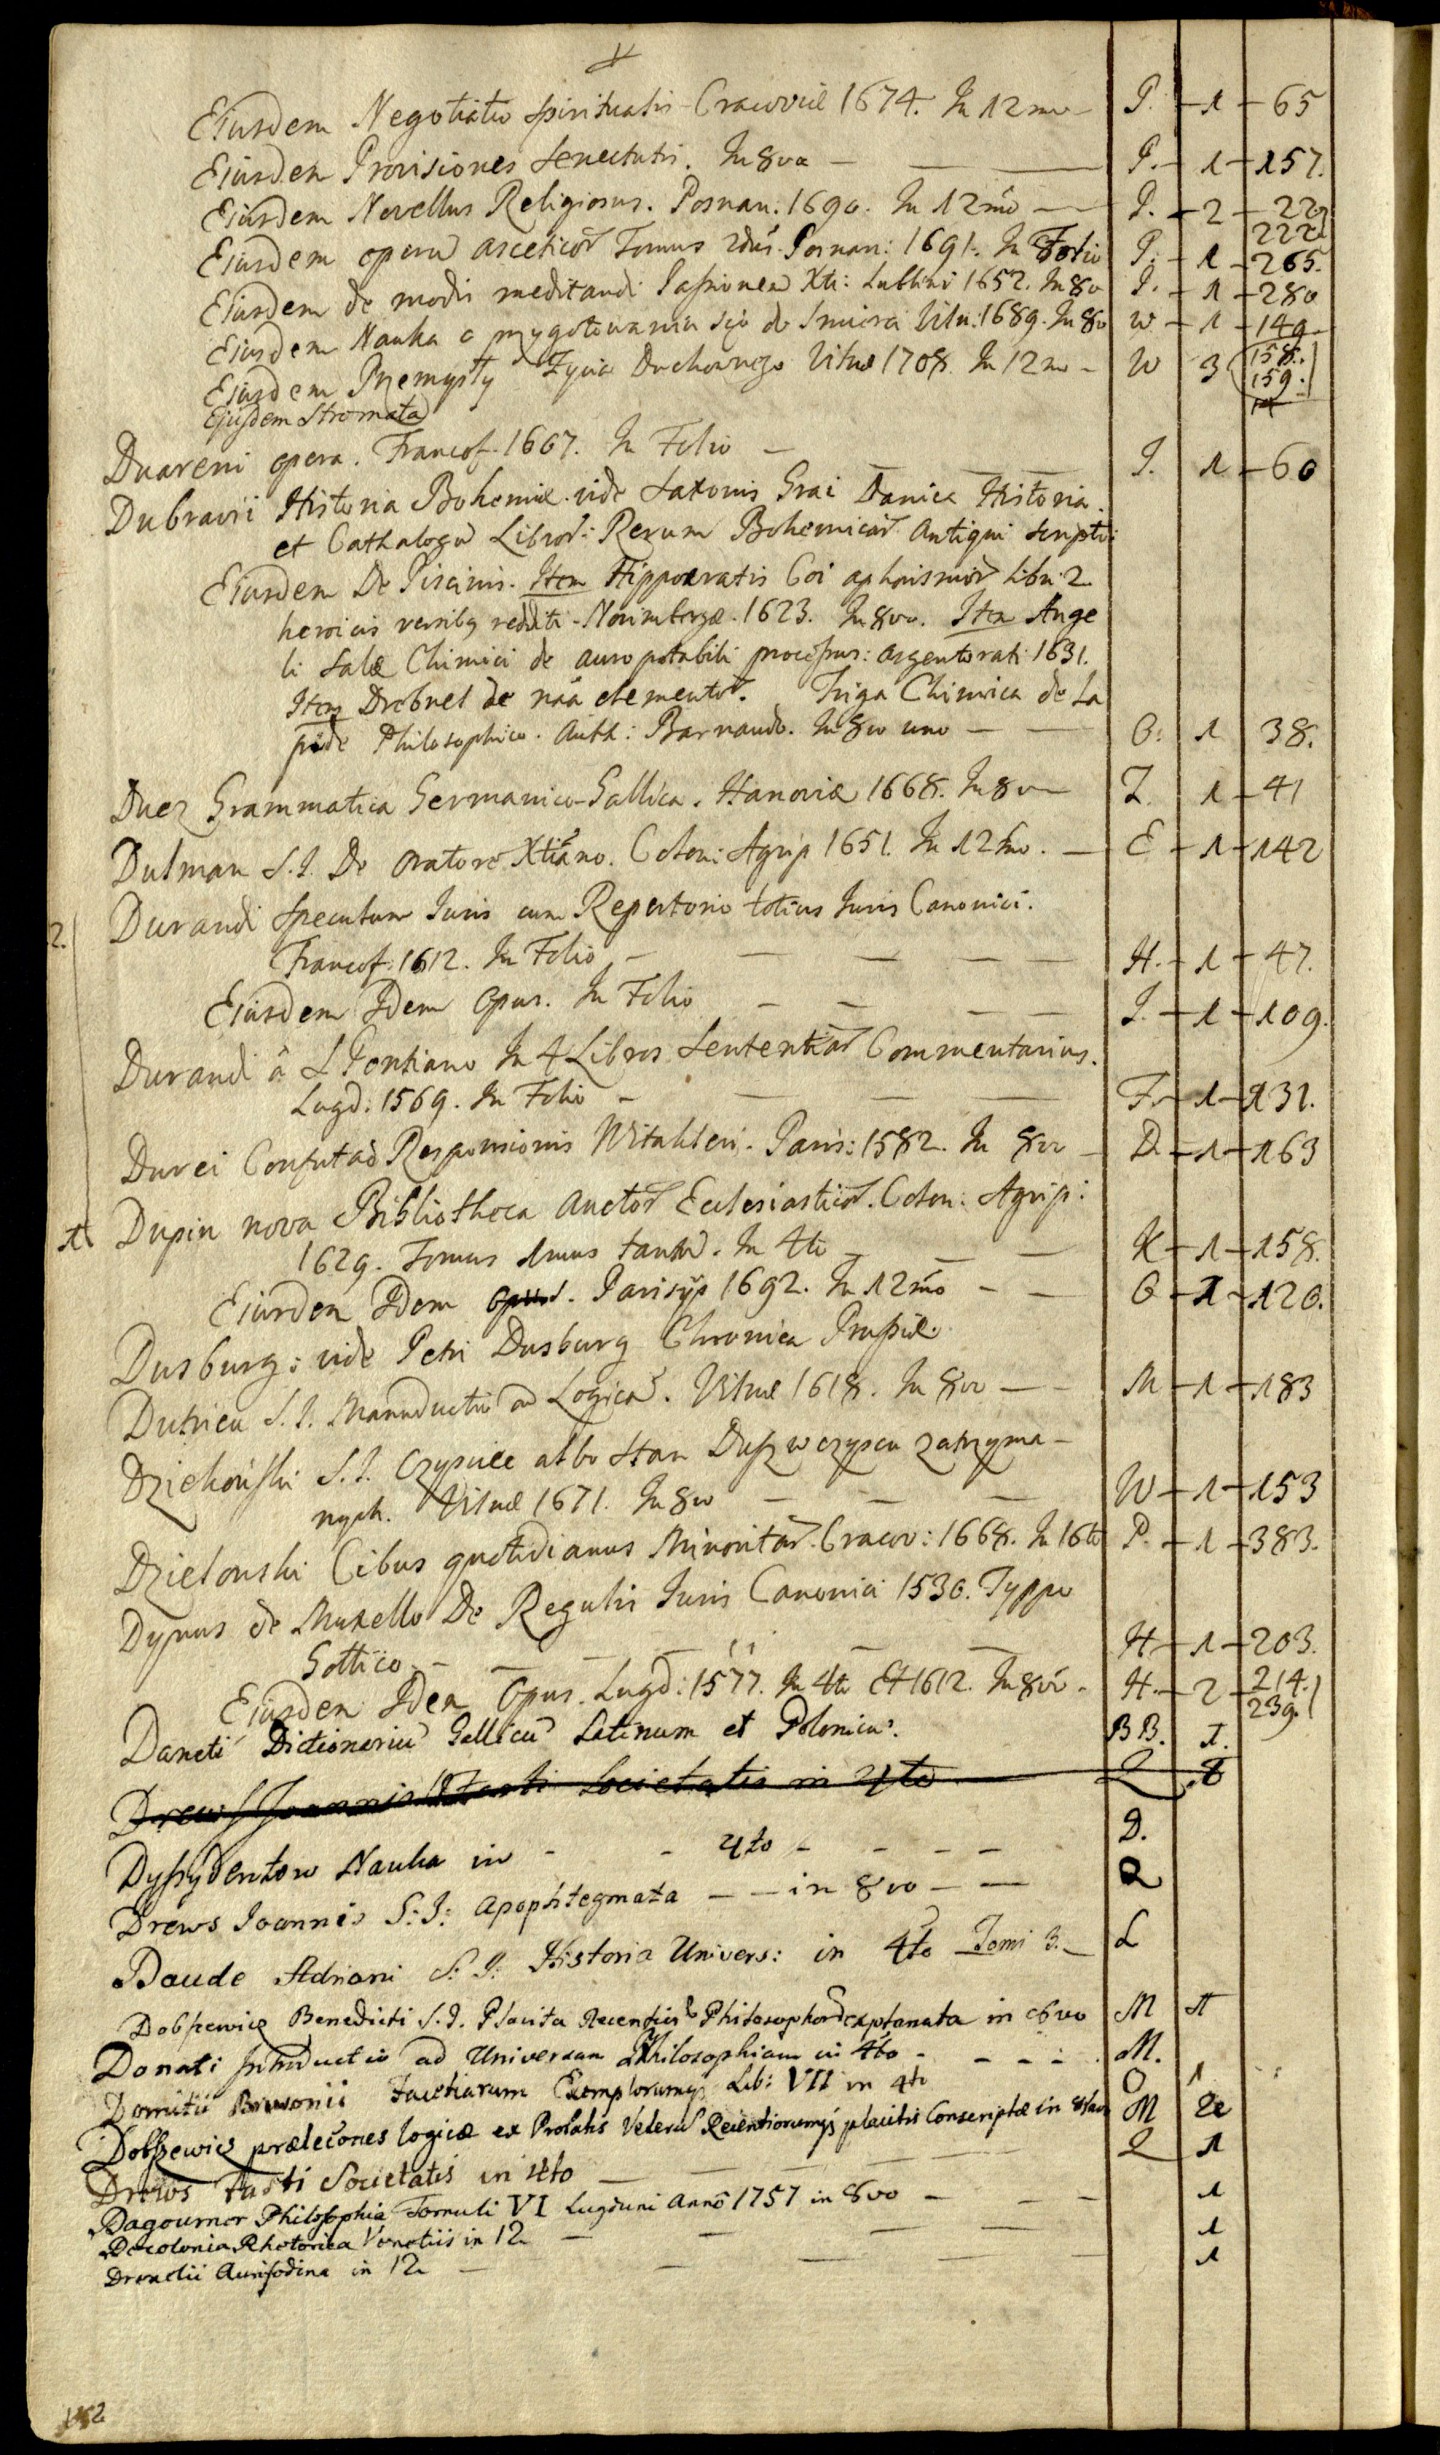 Ejusdem Negotiatio spiritualis Cracoviæ 1674. In 12mo - P. - 1 - 65
Ejusdem Provisiones senectutis. In 8vo - P. - 1 - 157.
Ejusdem Novellus Religiosus. Posnan. 1690. In 12mo - P. - 2 - 22
222
Ejusdem opera asceticor Tomus 2dus. Posnan: 1691. In Folio P. - 1 - 265.
Ejusdem de modis meditandi Passionem Xti: Lublini 1652. In 8vo P. - 1 - 280
Ejusdem Nauka o przygotowaniu się do śmierci Viln: 1689. In 8vo W - 1 - 149
Ejusdem Przemysły Zycia Duchownego Vilnæ 1708. In 12mo - W 3 158.
159.
Ejusdem Stromata
Duareni opera. Francof. 1607. In Folio - I. 1 - 60
Dubravii Historia Bohemiæ vide Saxonis Grai Danica Historia.
et Cathalogu Libror: Rerum Bohemicar Antiqui script:
Ejusdem De Piscinis. Item Hippocratis Coi aphorismor libri 2
heroicis versibq redditi. Norimbergæ. 1623. In 8vo. Item Ange
li Salæ Chimici de auro potabili processus: Argentorati 1631.
Item Drebnel de naã elementor. Triga Chimica de La
pide Philosophico. Auth: Barnaudo. In 8vo uno - O. 1 38.
Duez Grammatica Germanico-Gallica. Hanoviæ 1668. In 8vo Z. 1 - 41
Dulman S.J. De oratore Xtiano. Colon: Agrip 1651. In 12mo. - E - 1 - 142
2. Durandi Speculum Juris cum Repertorio totius Juris Canonici.
Francof. 1612. In Folio - H. - 1 - 47.
Ejusdem Idem Opus. In Folio - I. - 1 - 109.
Durandi â S. Pontiano In 4 Libros Sententiar Commentarius.
Lugd: 1569. In Folio - F. - 1 - 131.
Durei Confutao Responsionis Witakleri. Paris: 1582. In 8vo - D. - 1 - 163
Dupin nova Bibliotheca Auctor Ecclesiasticor. Colon. Agrip:
1629. Tomus 1mus tantu. In 4to - K - 1 - 158.
Ejusdem Idem opus. Parisijs 1692. In 12mo - O - 1 - 120.
Dusburg: vide Petri Dusburg Chronica Prussiæ.
Dutrieu S.J. Manuductio ad Logica. Vilnæ 1618. In 8vo - M - 1 - 183
Dziekoński S.J. Czysciec albo Stan Dusz w czyscu zatrzyma-
nych. Vilnæ 1671. In 8vo - W - 1 - 153
Dzielonski Cibus quotidianus Minoritar. Cracov: 1668. In 16to P. - 1 - 383.
Dynus de Muxello De Regulis Juris Canonici 1530. Typpo
Gottico. - H - 1 - 203.
Ejusdem Idem Opus. Lugd: 1577. In 4to Et 1612. In 8vo. H. - 2 - 214.
239.
Daneti Dictionariu Gallicu Latinum et Polonicu. BB. 1.
Drews Joannis Fasti Societatis in 4to Q 8
Dyssydentow Nauka in - - 4to - - - - D.
Drews Joannis S: J: Apophtegmata - - in 8vo - - Q
Daude Adriani S. J: Historia Univers: in 4to Tomi 3. - L
Dobszewicz Benedicti S.J. Placita Recentioru Philosophor explanata in 8vo M
Donati Introductio ad Universam Philosophiam in 4to - - - - . M.
Domitii Brusonii Facetiarum Exemplorumq Lib: VII in 4to O 1
Dobszewicz prælečones logicæ ex Probatis Veteru Recentiorumq placitis Conscriptæ in 8tavo M 2
Drews Fasti Societatis in 4to - Q 1
Dagoumer Philosophia Tomuli VI Lugduni Anno 1757 in 8vo - - - 1
Decolonia Rhetorica Venetiis in 12 - 1
Drexelii Aurifodina in 12 - 1